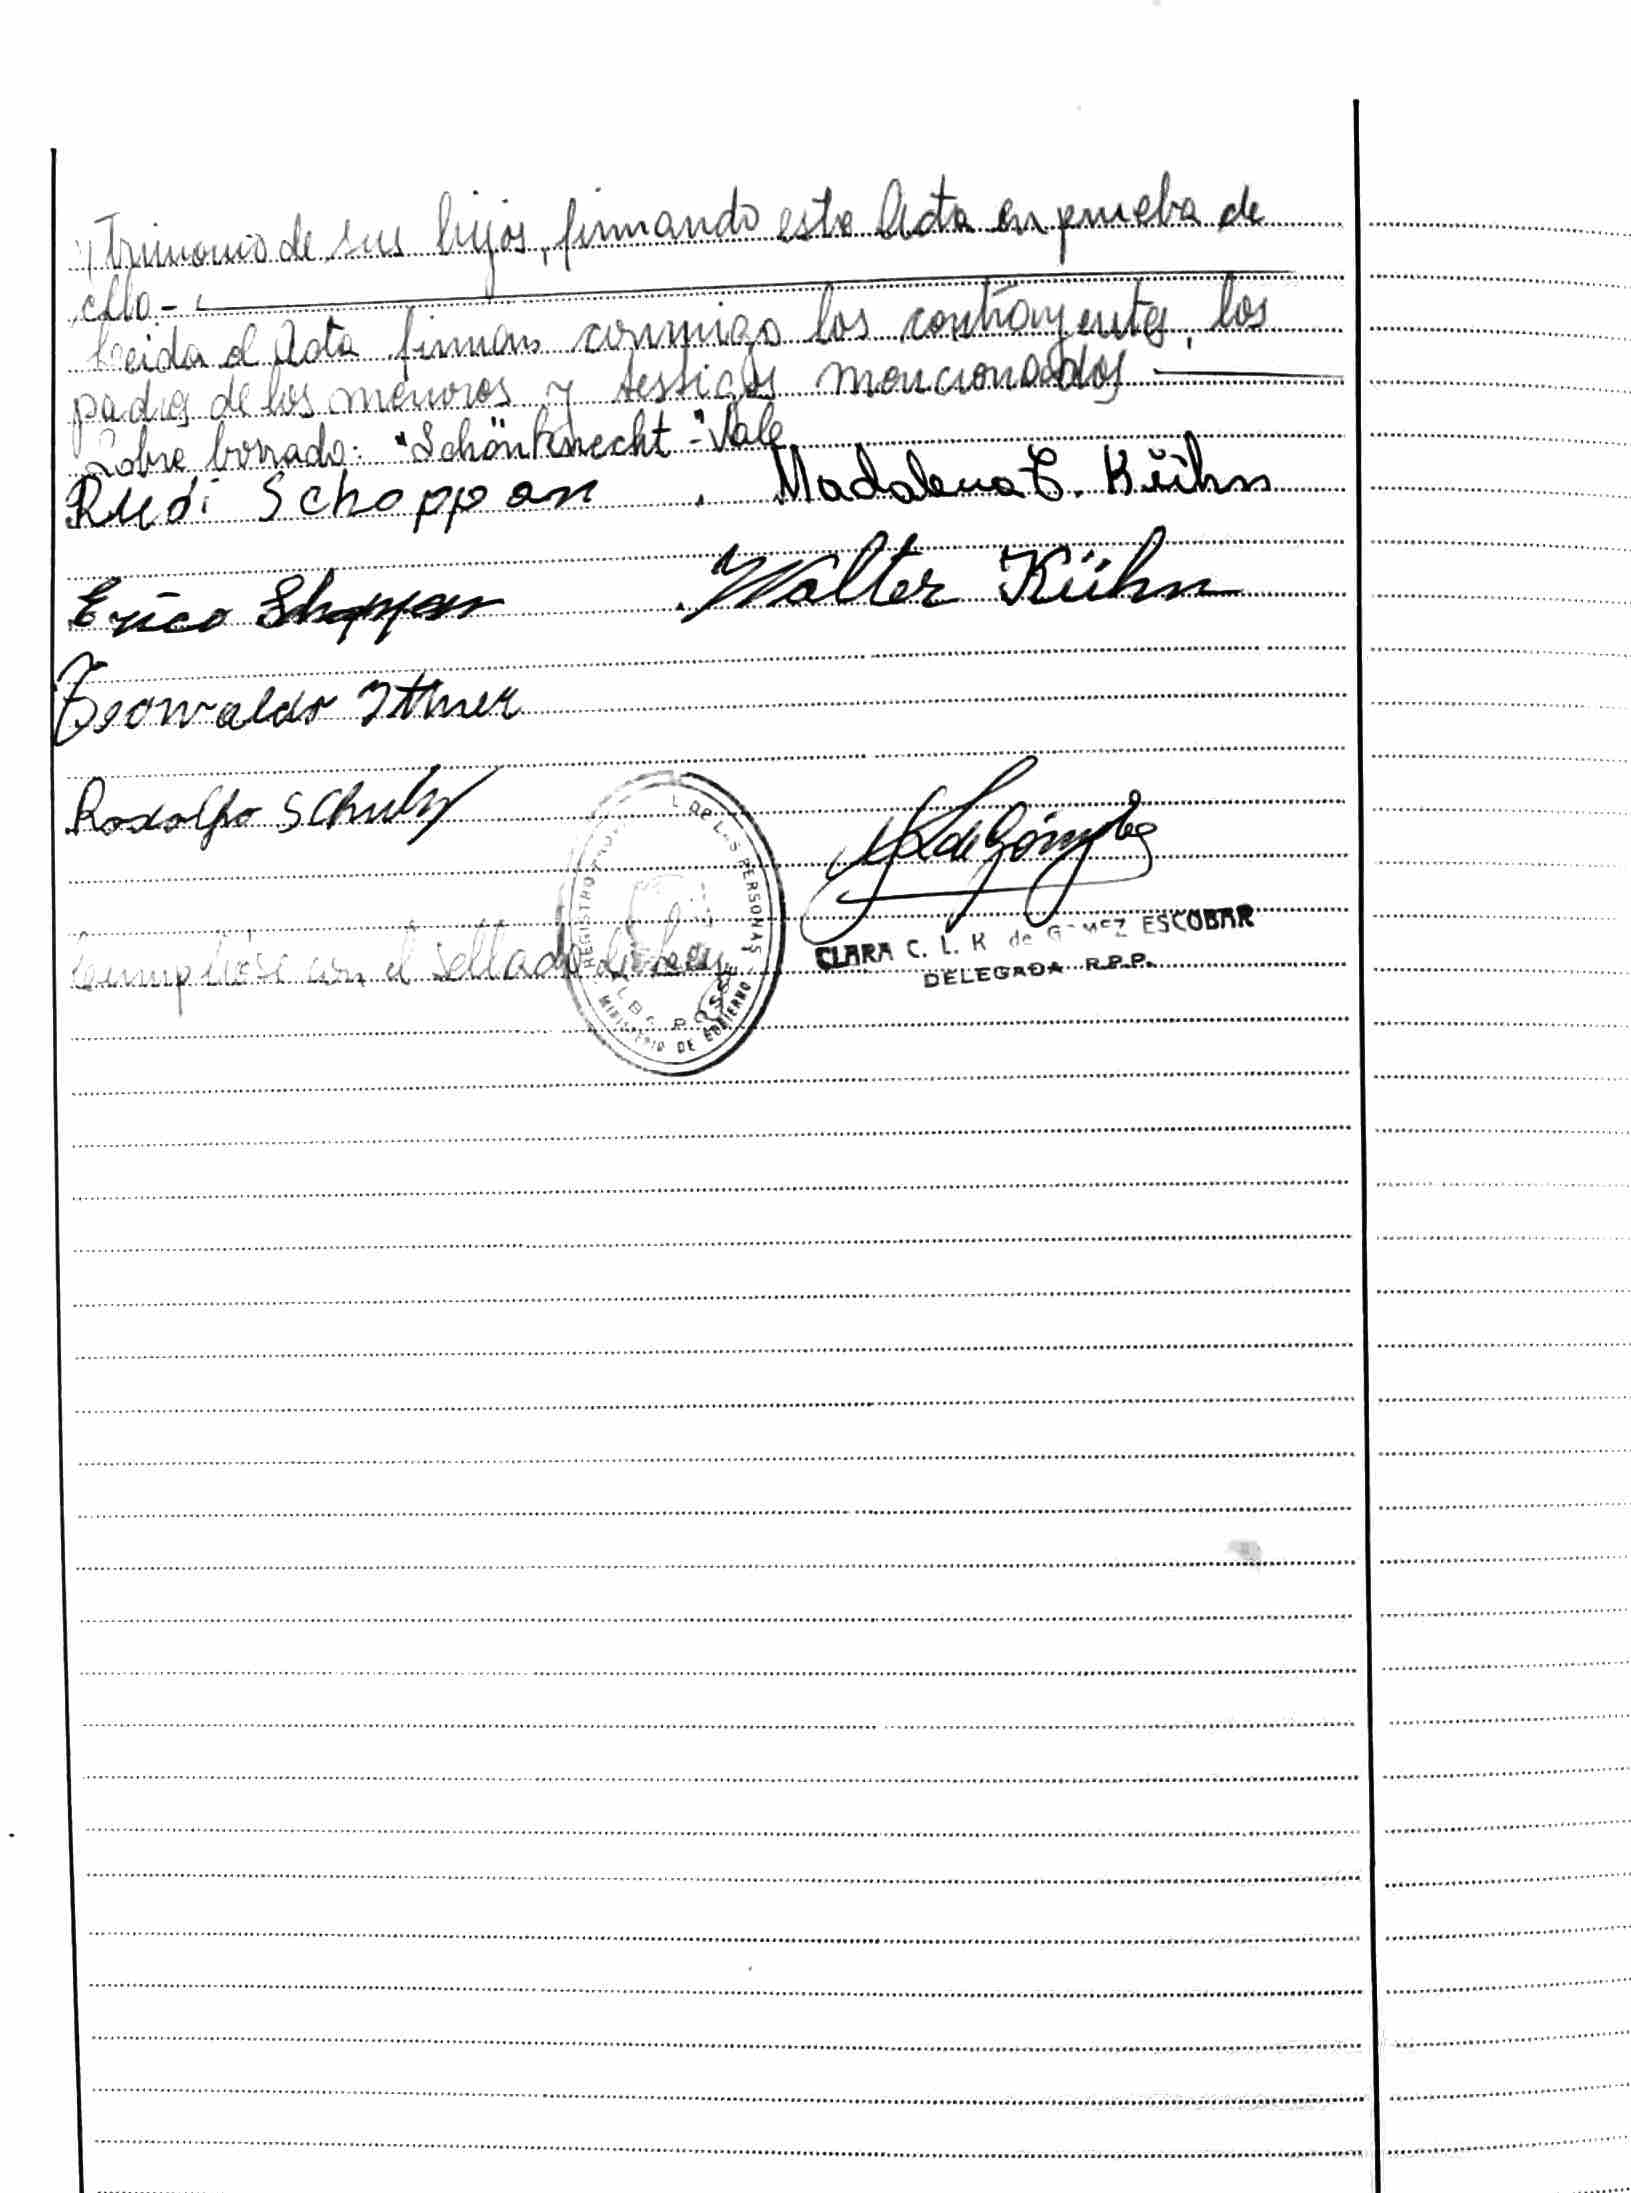 trimonio de sus hijos, firmando esta Acta en prueba de
ello.-
Leida el Acta firman conmigo los contrayentes, los
padres de los menores y testigos mencionados
Sobre borrado: "Schönknecht"-Vale
Rudi Schoppan . Madalena C. Kühn
Erico Shoppan . Walter Kühn
Teowaldo Ittner
Rodolfo Schulz
CLARA C. L. K. de GOMEZ ESCOBAR
DELEGADA R.P.P.
Cumplióse con el sellado de Ley
REGISTRO L DE LAS PERSONAS
ALBA POSSE
MINISTERIO DE GOBIERNO